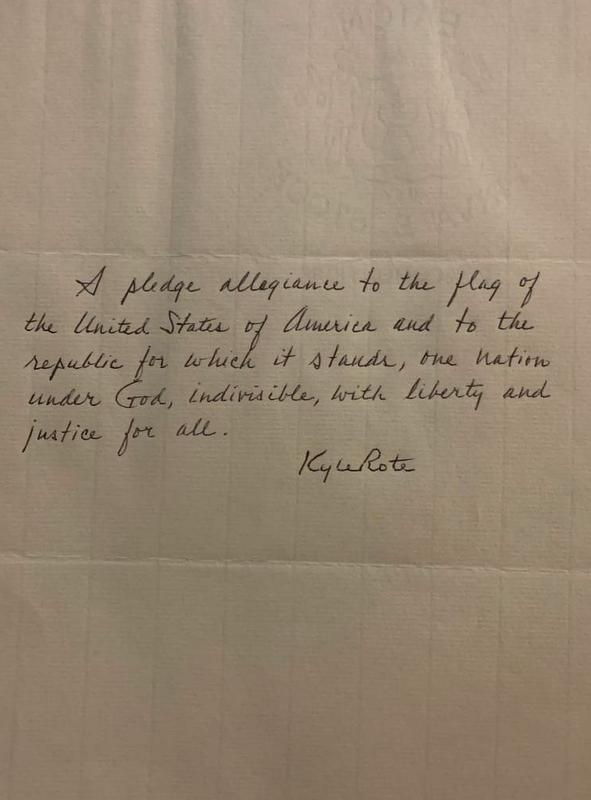 I pledge allegiance to the flag of
the United States of America and to the
republic for which it stands, one nation
under God, indivisible, with liberty and
justice for all.
Kyle Rote